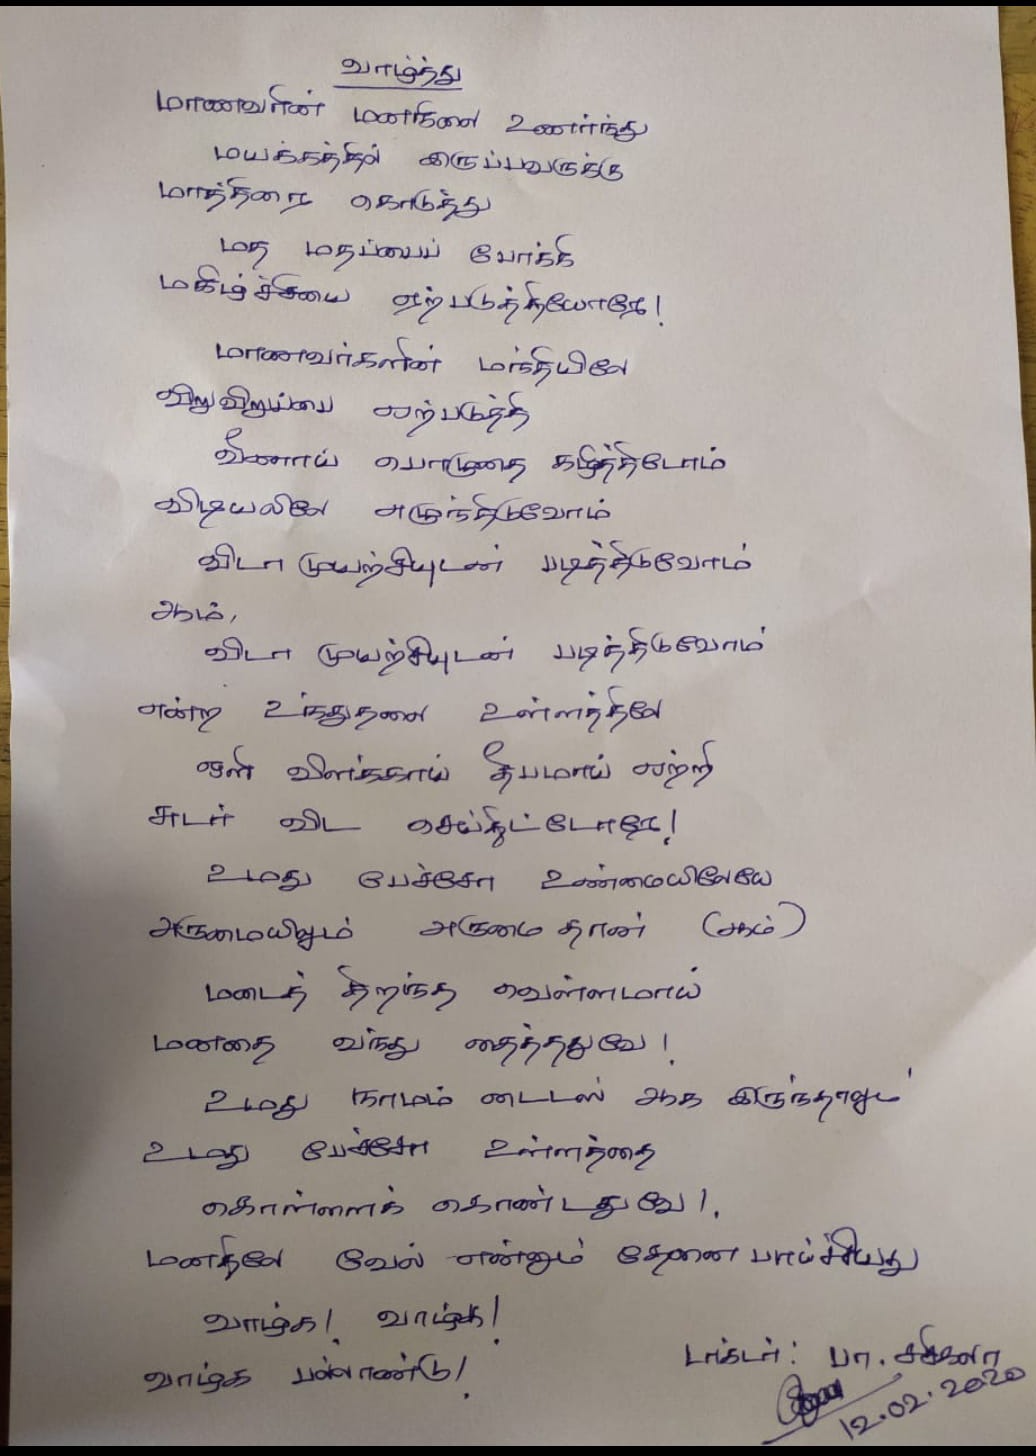 வாழ்த்து
மாணவரின் மனநிலை உணர்ந்து
மயக்கத்தில் இருப்பவருக்கு
மாத்திரை கொடுத்து
மத மதப்பைப் போக்கி
மகிழ்ச்சியை ஏற்படுத்தியோரே!
மாணவர்களின் மத்தியிலே
விறுவிறுப்பை ஏற்படுத்தி
வீணாய் பொழுதை கழித்திடோம்
விடியலிலே அமர்ந்திடுவோம்
விடா முயற்சியுடன் படித்திடுவோம்
ஆம்,
விடா முயற்சியுடன் படித்திடுவோம்
என்ற உந்துதலை உள்ளத்திலே
ஒளி விளக்காய் தீபமாய் ஏற்றி
சுடர் விட செய்திட்டோரே!
உமது பேச்சோ உண்மையிலேயே
அருமையிலும் அருமை தான் (ஆம்)
மடைத் திறந்த வெள்ளமாய்
மனதை வந்து தைத்ததுவே!
உமது நாமம் டைடஸ் ஆக இருந்தாலும்
உமது பேச்சோ உள்ளத்தை
கொள்ளைக் கொண்டதுவே!.
மனதிலே வேல் எனும் தேனை பாய்ச்சியது
வாழ்க! வாழ்க!
வாழ்க பல்லாண்டு!
டாக்டர்: பா. சசிகலா
12.02.2020